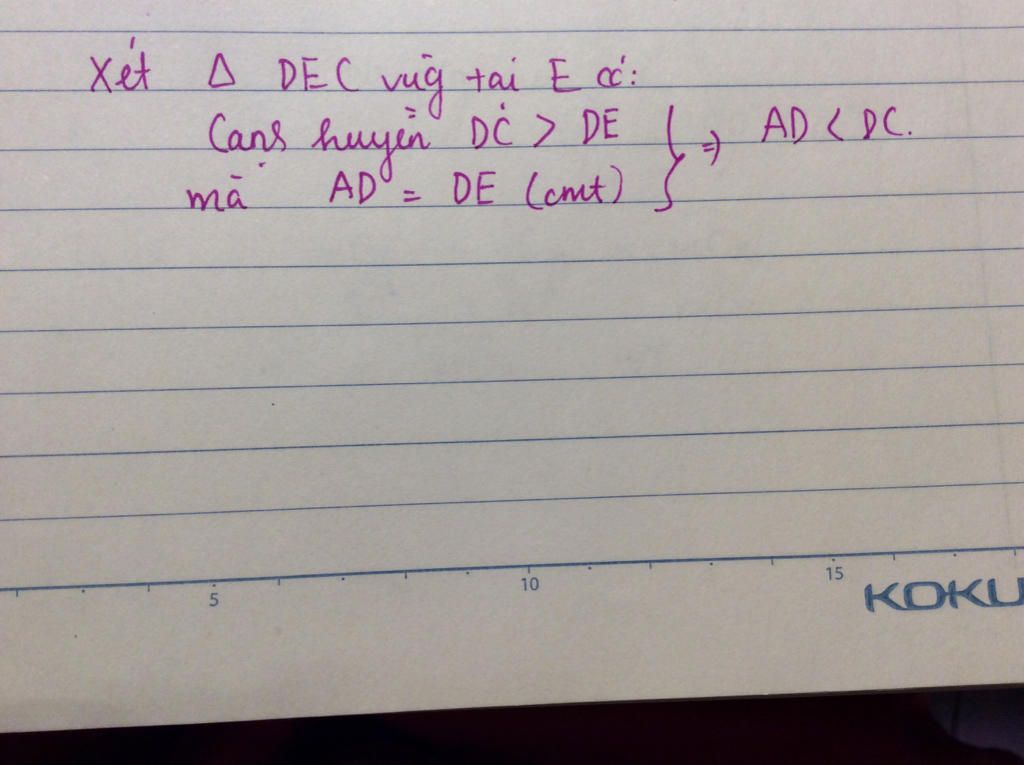 Xét Δ DEC vug̃ tại E có:
Cạnh huyền DC > DE } => AD < DC.
mà AD = DE (cmt)
5 10 15
KOKU